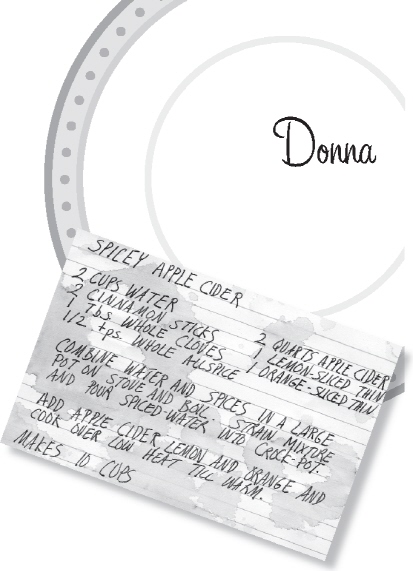 Donna
SPICEY APPLE CIDER
2 CUPS WATER
2 CINNAMON STICKS
1 Tbs. WHOLE CLOVES
1/2 tps. WHOLE ALLSPICE
2 QUARTS APPLE CIDER
1 LEMON-SLICED THIN
1 ORANGE-SLICED THIN
COMBINE WATER AND SPICES IN A LARGE
POT ON STOVE AND BOIL. STRAIN MIXTURE
AND POUR SPICED-WATER INTO CROCK-POT.
ADD APPLE CIDER LEMON AND ORANGE AND
COOK OVER LOW HEAT TILL WARM.
MAKES 10 CUPS